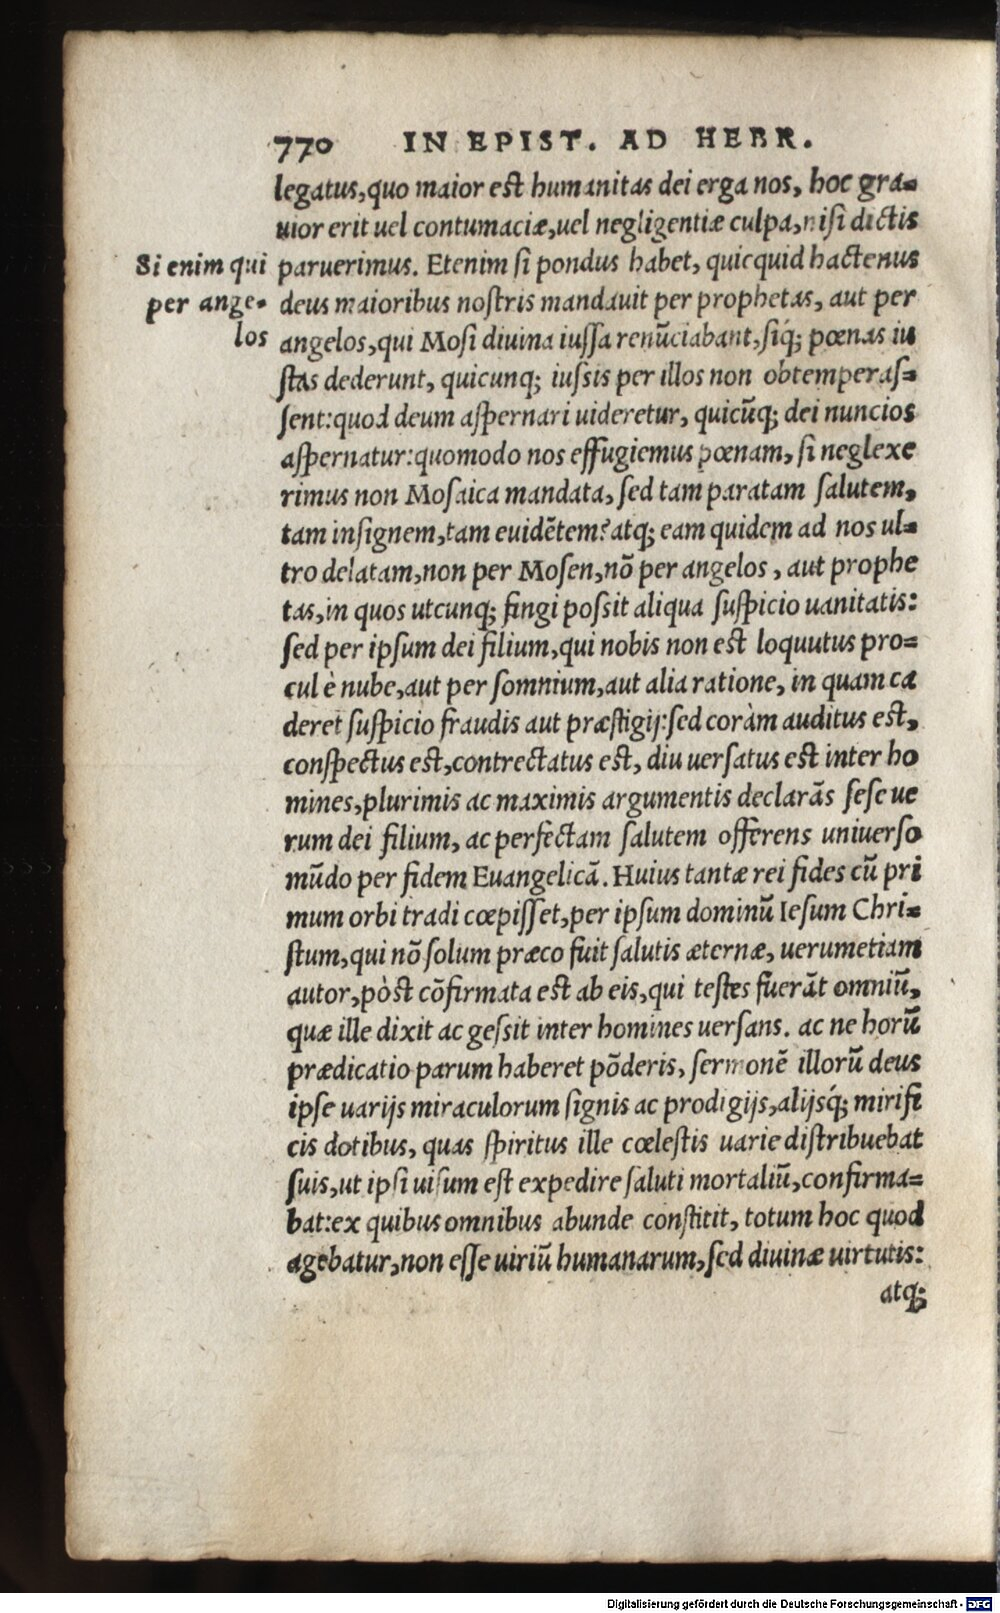 770 IN EPIST. AD HEBR.
legatus, quo maior est humanitas dei erga nos, hoc gra=
uior erit uel contumaciæ, uel negligentiæ culpa, nisi dictis
Si enim qui
per ange=
los
paruerimus. Etenim si pondus habet, quicquid hactenus
deus maioribus nostris mandauit per prophetas, aut per
angelos, qui Mosi diuina iussa renũciabant, siq́; pœnas iu
stas dederunt, quicunq; iussis per illos non obtemperas=
sent: quod deum aspernari uideretur, quicũq; dei nuncios
aspernatur: quomodo nos effugiemus pœnam, si neglexe
rimus non Mosaica mandata, sed tam paratam salutem,
tam insignem, tam euidẽtem? atq; eam quidem ad nos ul=
tro delatam, non per Mosen, nõ per angelos, aut prophe
tas, in quos utcunq; fingi possit aliqua suspicio uanitatis:
sed per ipsum dei filium, qui nobis non est loquutus pro=
cul è nube, aut per somnium, aut alia ratione, in quam ca
deret suspicio fraudis aut præstigij: sed coràm auditus est,
conspectus est, contrectatus est, diu uersatus est inter ho
mines, plurimis ac maximis argumentis declarãs sese ue
rum dei filium, ac perfectam salutem offerens uniuerso
mũdo per fidem Euangelicã. Huius tantæ rei fides cũ pri
mum orbi tradi cœpisset, per ipsum dominũ Iesum Chri=
stum, qui nõ solum præco fuit salutis æternæ, uerumetiam
autor, pòst cõfirmata est ab eis, qui testes fuerãt omniũ,
quæ ille dixit ac gessit inter homines uersans. ac ne horũ
prædicatio parum haberet põderis, sermonẽ illorũ deus
ipse uarijs miraculorum signis ac prodigijs, alijsq́; mirifi
cis dotibus, quas spiritus ille cœlestis uarie distribuebat
suis, ut ipsi uisum est expedire saluti mortaliũ, confirma=
bat: ex quibus omnibus abunde constitit, totum hoc quod
agebatur, non esse uiriũ humanarum, sed diuinæ uirtutis:
atq;
Digitalisierung gefördert durch die Deutsche Forschungsgemeinschaft - DFG